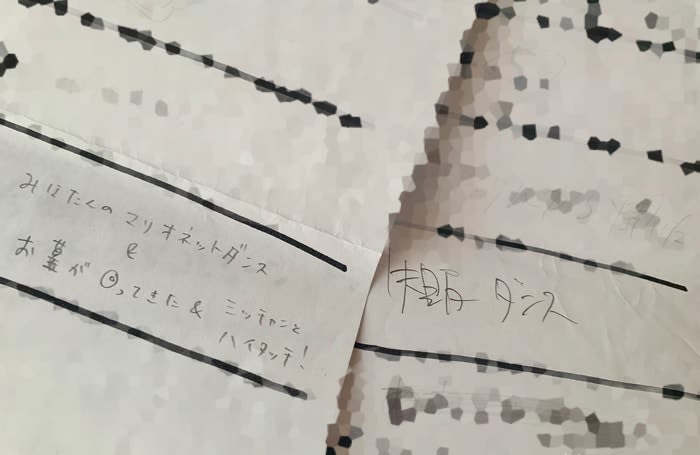 みほたくの マリオネットダンス
&
お墓が ◎ってきた & ミッチャンと
ハイタッチ!
ダンス